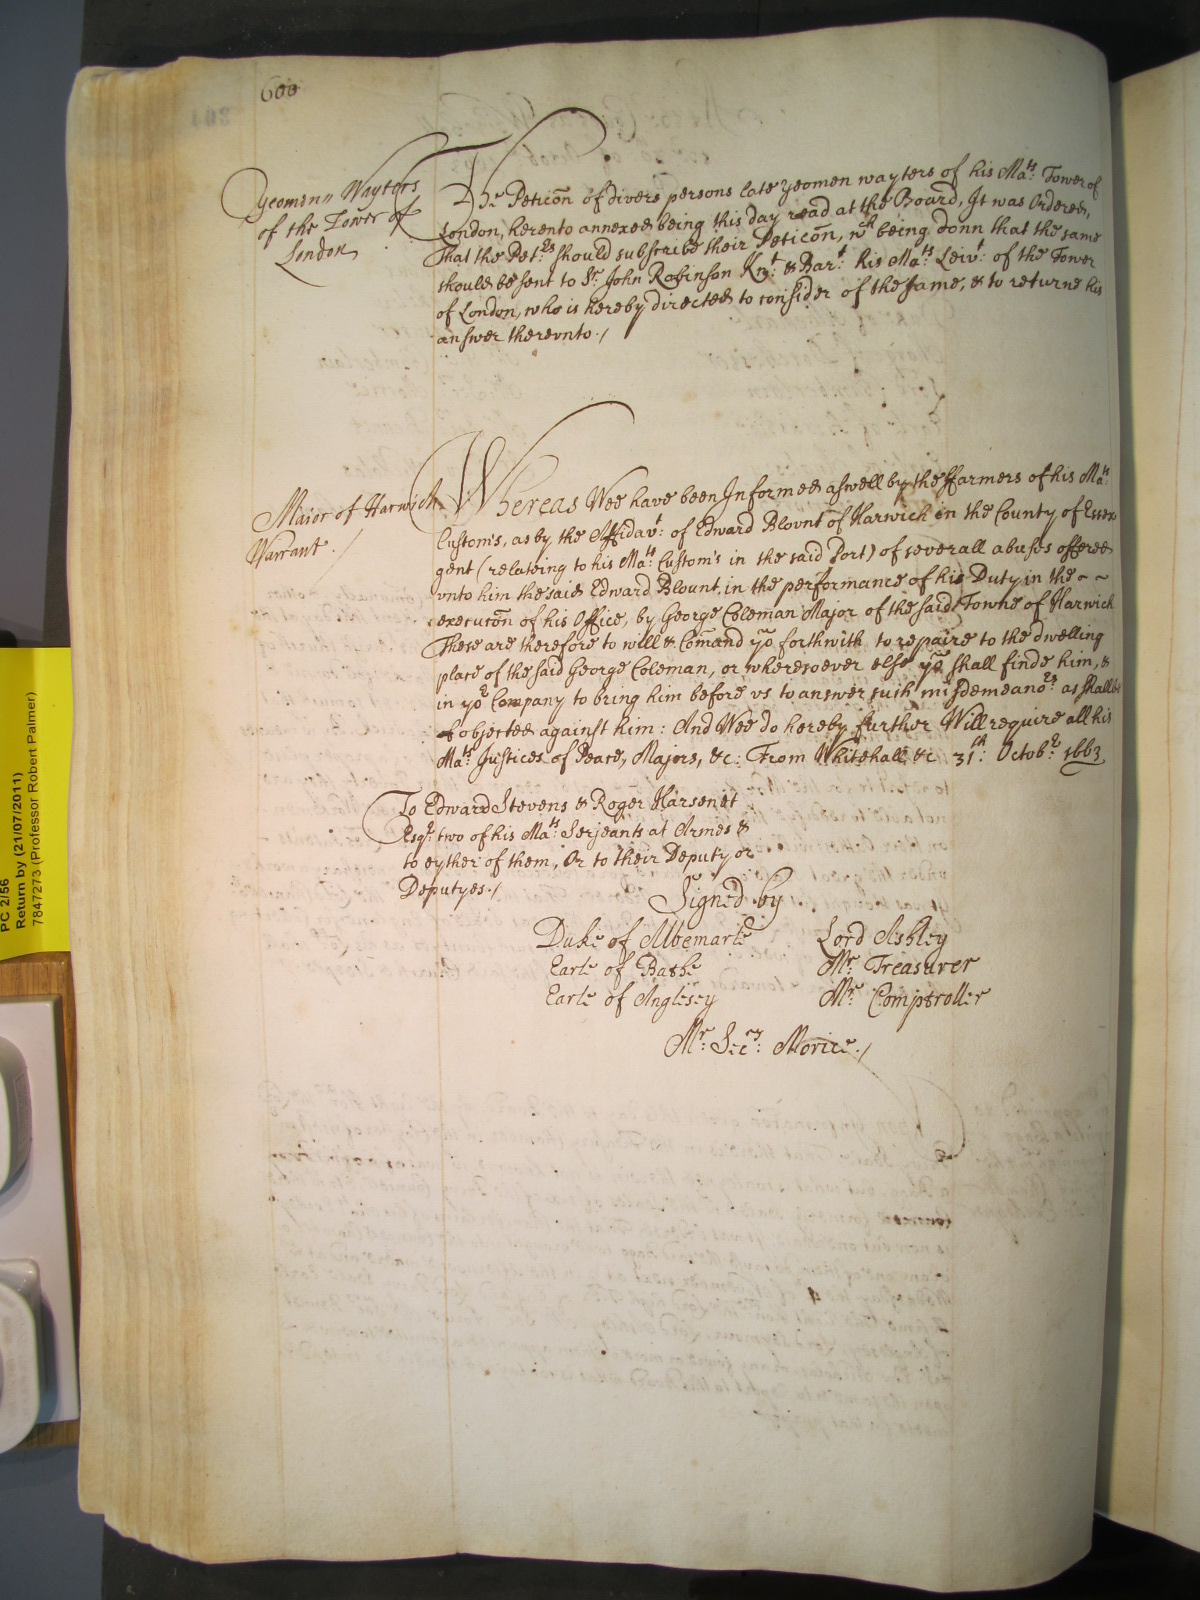 600
Yeomen Wayters
of the Tower of
London
The Peticõn of divers persons late yeomen wayters of his Ma:ts Tower of
London, hereto annexed being this day read at the Board, It was Ordered,
That the Pet:rs should subscribe their Peticõn, wch being donn that the same
should be sent to Sr. John Robinson Knt: & Bart: his Ma:ts Leivt: of the Tower
of London, who is hereby directed to consider of the same, & to returne his
answer therevnto./
Maior of Harwich
Warrant./
Whereas Wee have been Informed aswell by the ffarmers of his Ma:ts
Custom's, as by the Affidavt: of Edward Blount of Harwich in the County of Essex
gent (relateing to his Ma:ts Custom's in the said Port) of severall abuses offered
vnto him the said Edward Blount, in the performance of his Duty in the ~ ~
executcõn of his Office, by George Coleman Major of the said Towne of Harwich
These are therefore to will & Com̃and yo forthwith to repaire to the dwelling
place of the said George Coleman, or wheresoever else yo shall finde him, &
in yor Company to bring him before vs to answer such misdemeanors as shall be
objected against him: And Wee do hereby further Will require all his
Ma:ts Justices of Peace, Majors, &c: From Whitehall &c 31:th Octobr: 1663
To Edward Stevens & Roger Harsenet
Esqr: two of his Ma:ts Serjeants at Armes &
to eyther of them, Or to their Deputy or
Deputyes./
Signed by
Duke of Albemarle Lord Ashley
Earle of Bathe Mr: Treasurer
Earle of Anglesey Mr: Comptroller
Mr: Secry: Morice./
PC 2/56
Return by (21/07/2011)
7847273 (Professor Robert Palmer)